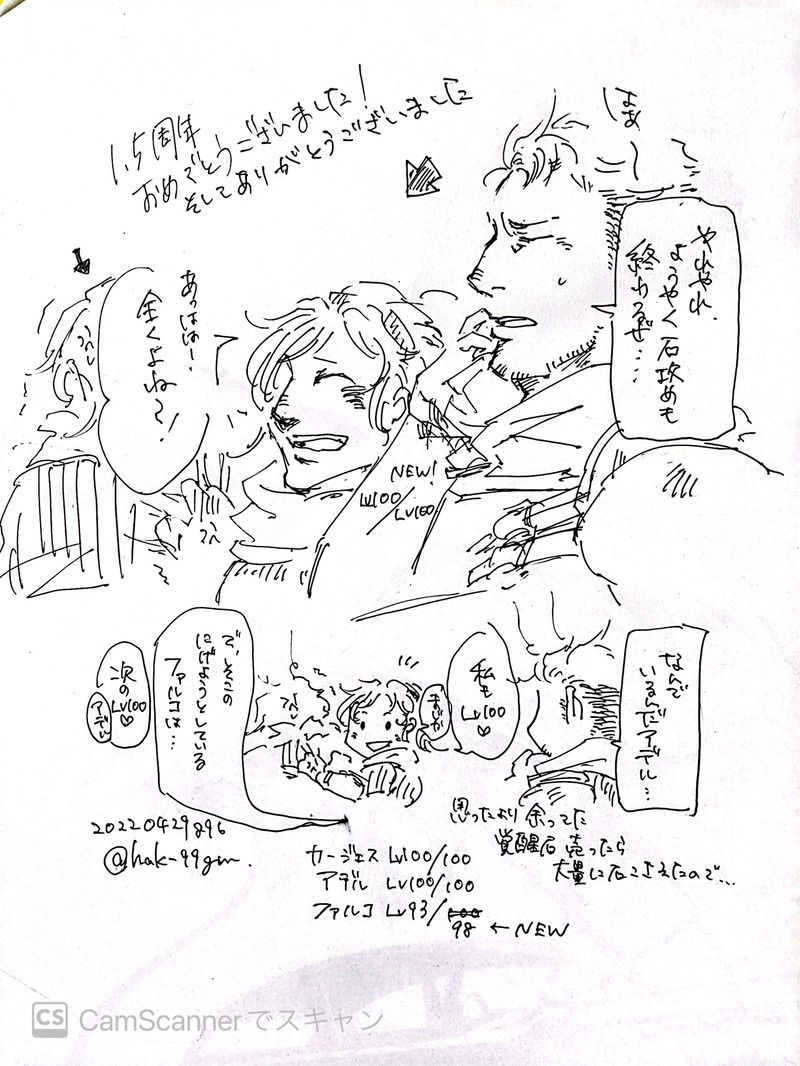 1.5周年
おめでとうございました!
そしてありがとうございました
はぁ
やれやれ、
ようやく石攻めも
終わるぜ…
あっはは!
全くよね~!
NEW!
LV100
/LV100
なんで
いるんだアデル…
私も
LV100
♡
まじか
で、そこの
にげようとしている
ファルコは…
次の
LV100
♡
アデル
20220429
@hak-99gm.
思ったより余ってた
覚醒石売ったら
大量に石こさえたので…
カージェス LV100/100
アデル LV100/100
ファルコ LV93/100
98 ←NEW
CS CamScannerでスキャン